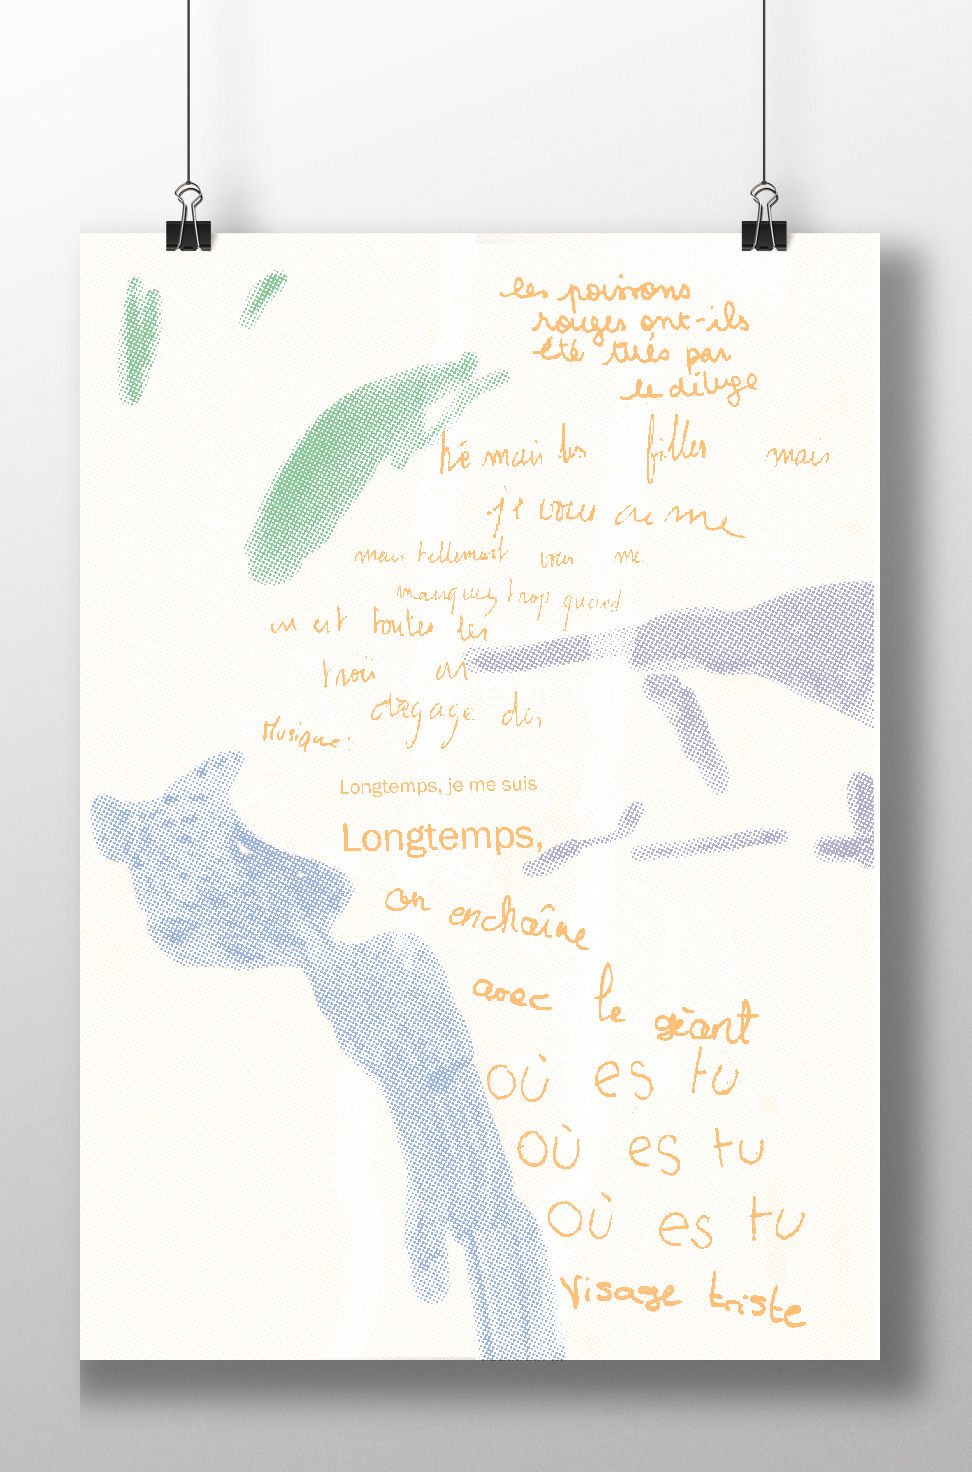 les poissons
rouges ont-ils
été tués par
le déluge
hé mais les filles mais
je vous aime
mais tellement vous me
manquez trop quand
on est toutes les
trois on
dégage des
Musique:
Longtemps, je me suis
Longtemps,
on enchaîne
avec le géant
où es tu
où es tu
où es tu
Visage triste